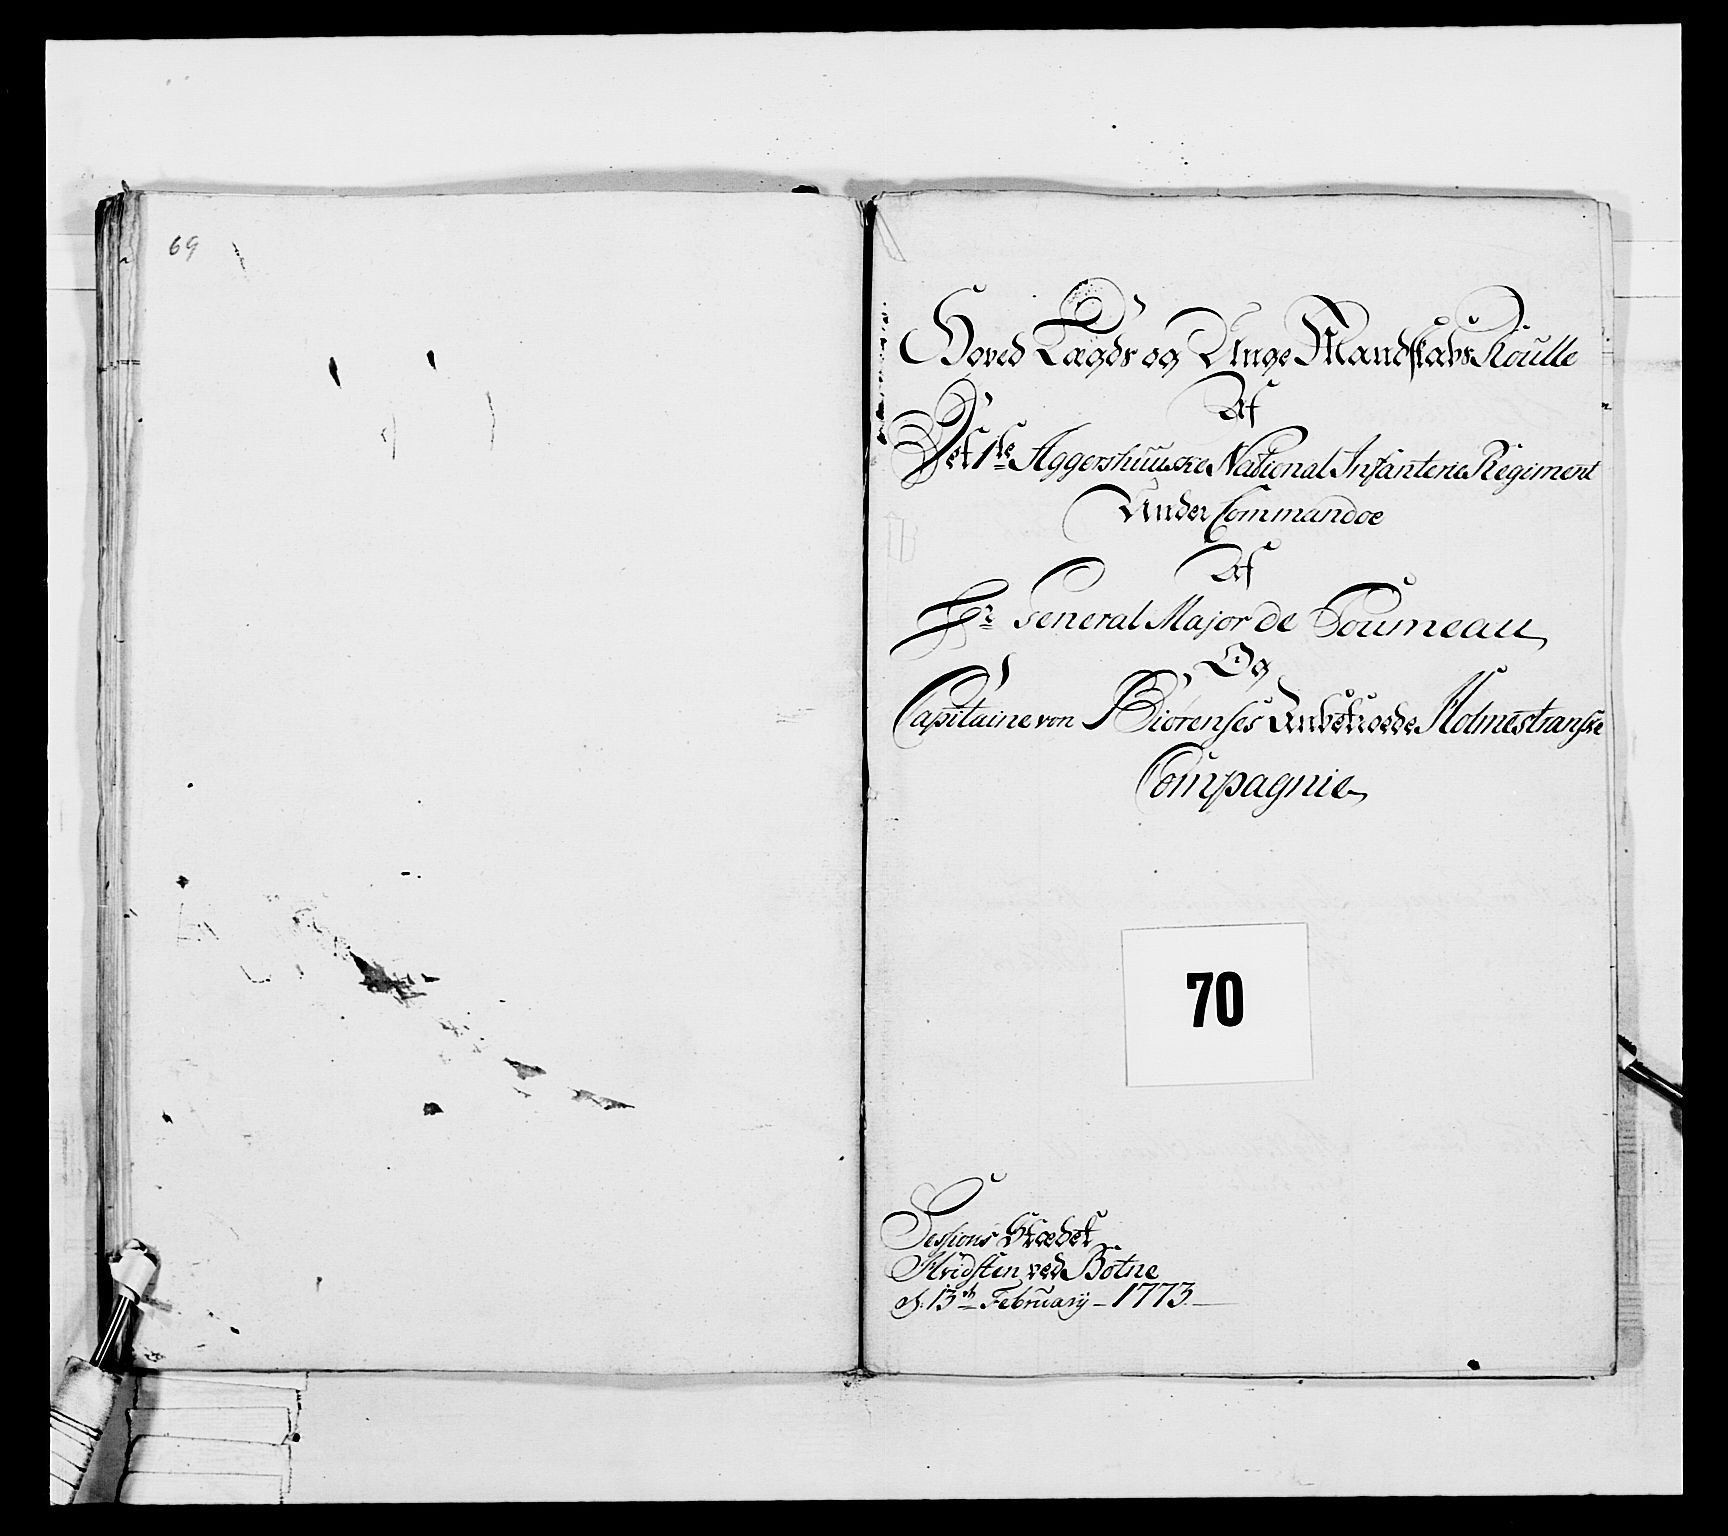 69
Hoved Lægds og Unge Mandskabs Roulle
Af
Det 1ste Aggershuuske National Infanterie Regiment
Under Commandoe
Af
Hr General Major de Fourneau
Og
Capitaine von Biörenses Anbetroede Holmestranske
Compagnie
70
Sessions Stædet
Hvidsten ved Botne
d: 13de February 1773